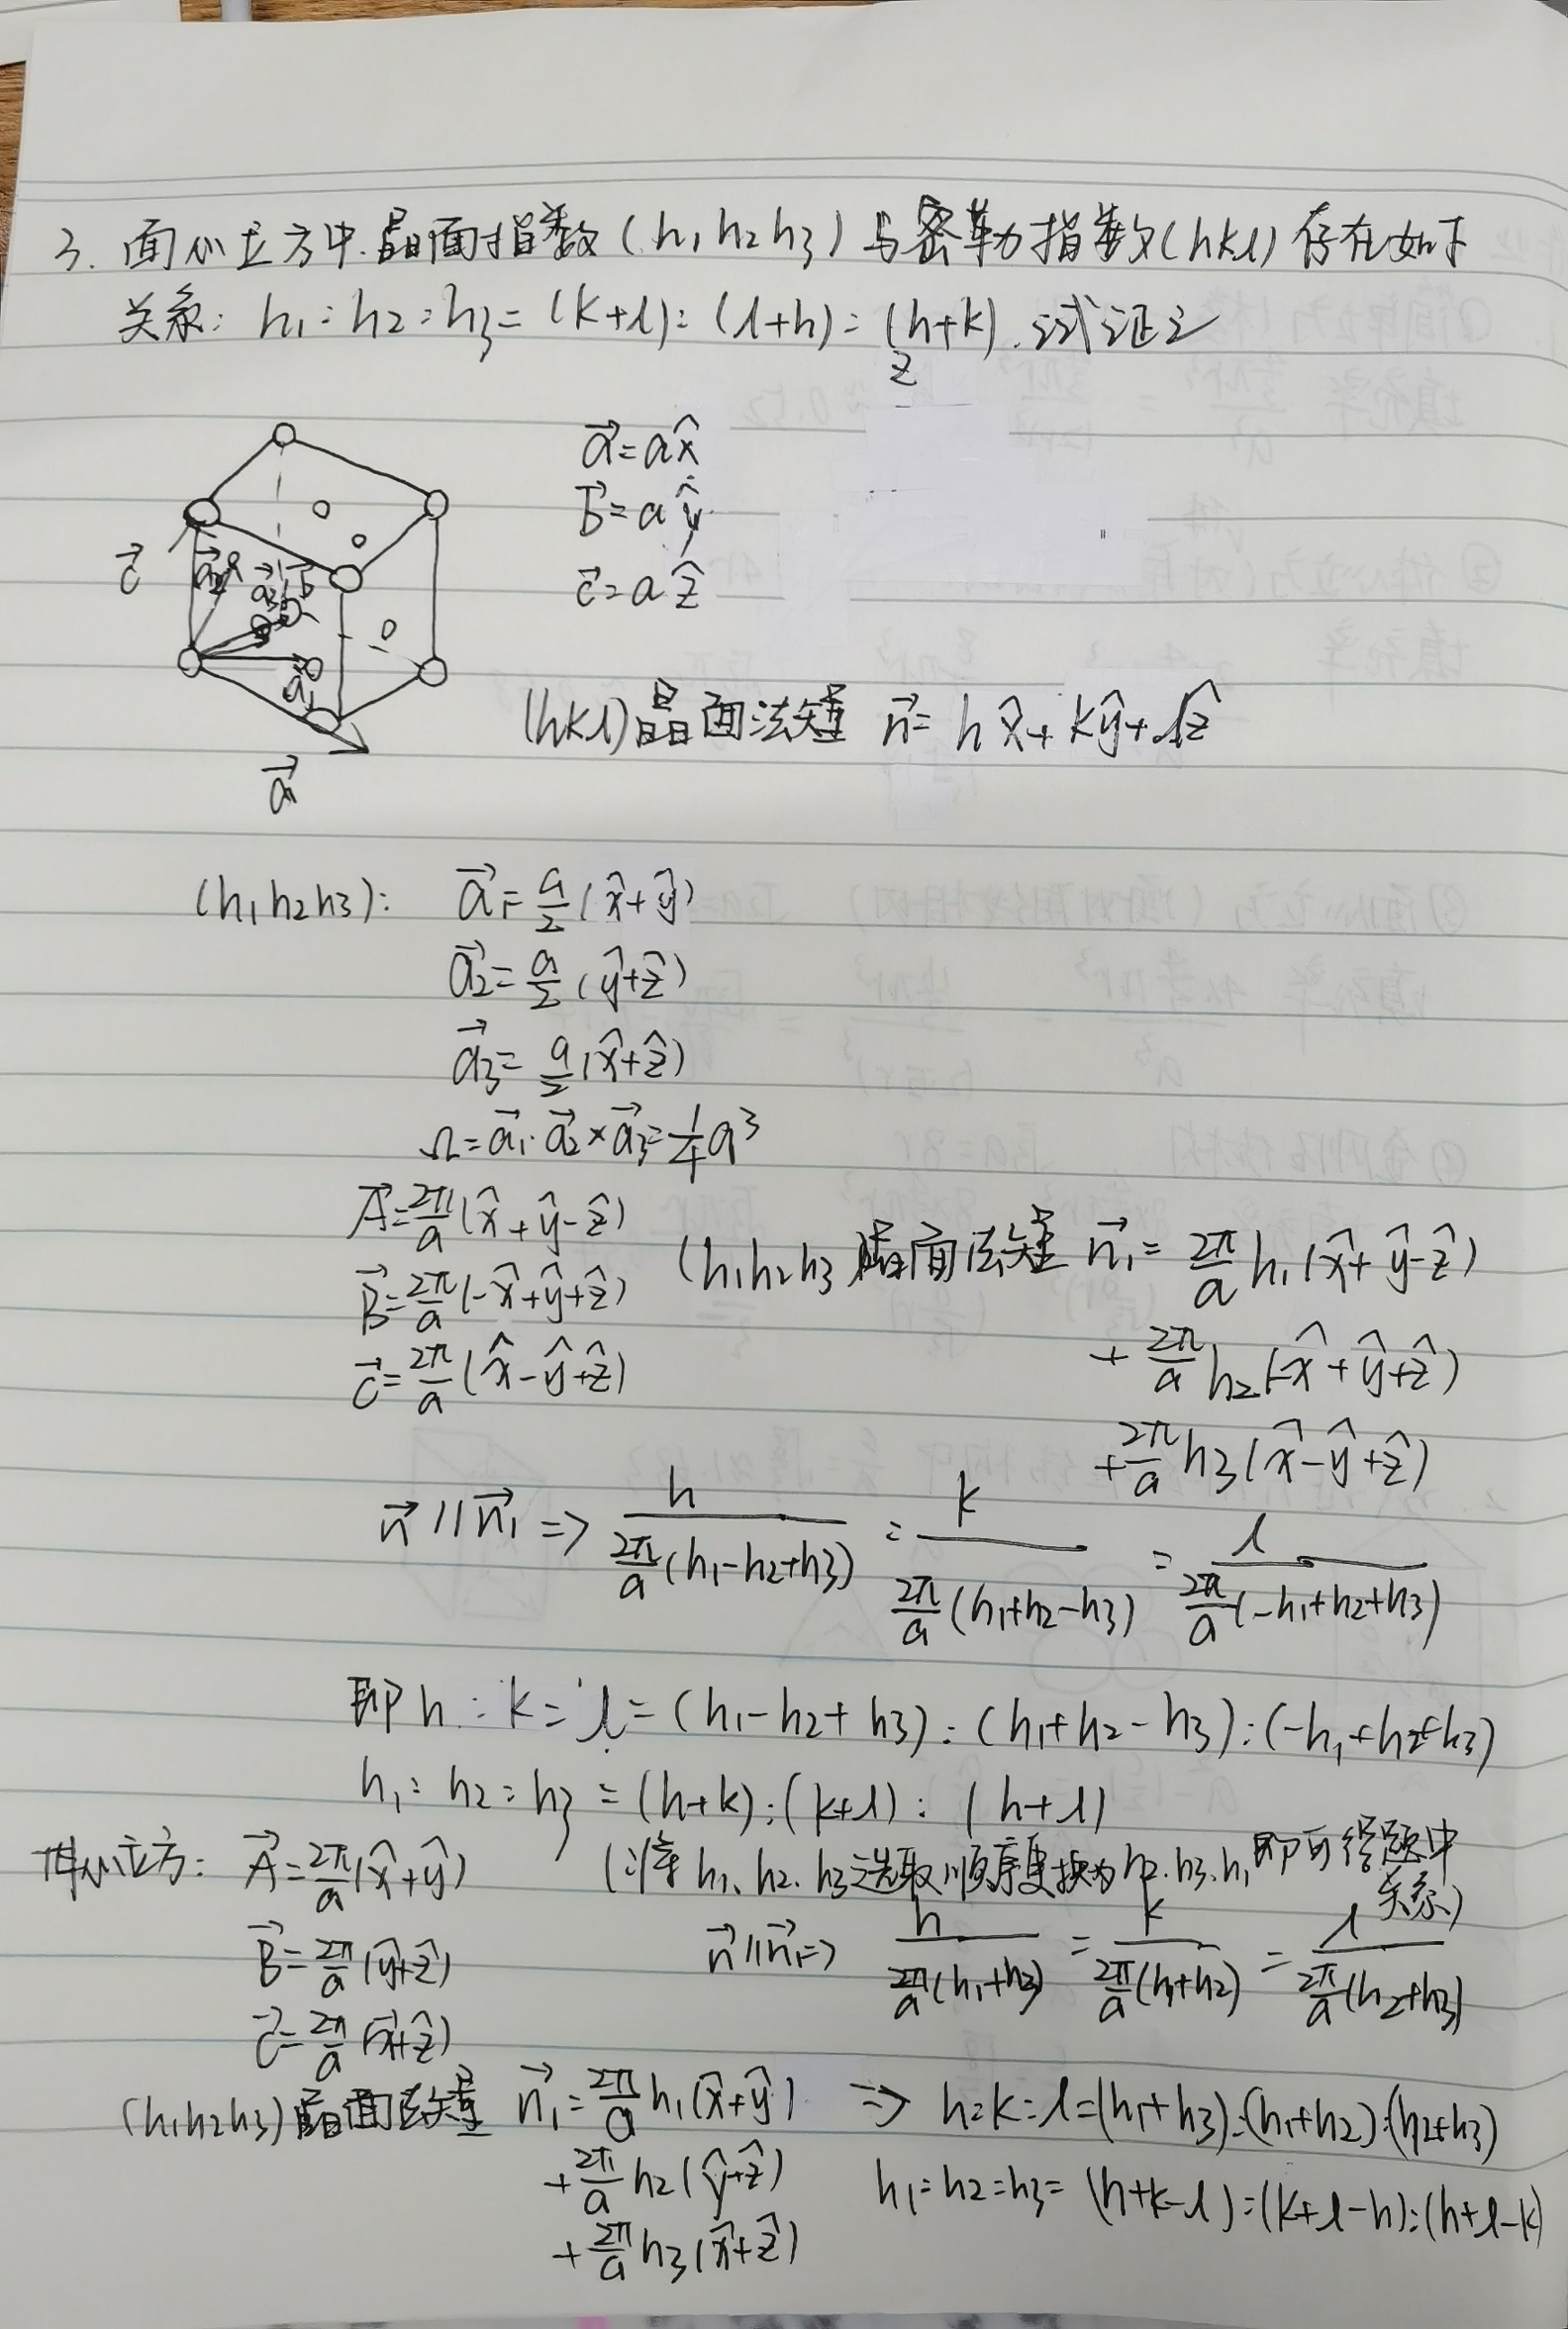 3. 面心立方中.晶面指数(h₁h₂h₃)与密勒指数(hkl)存在如下
关系: h₁:h₂:h₃=(k+l):(l+h):(h+k).试证之
z
a⃗=ax̂
b⃗=aŷ
c⃗=aẑ
c⃗
a⃗₂
a⃗₃
b⃗
a⃗₁
a⃗
(hkl)晶面法矢 n⃗=hx̂+kŷ+lẑ
(h₁h₂h₃): a⃗₁=a/2(x̂+ŷ)
a⃗₂=a/2(ŷ+ẑ)
a⃗₃=a/2(x̂+ẑ)
Ω=a⃗₁·a⃗₂×a⃗₃=1/4a³
A⃗=2π/a(x̂+ŷ-ẑ)
B⃗=2π/a(-x̂+ŷ+ẑ)
C⃗=2π/a(x̂-ŷ+ẑ)
(h₁h₂h₃)晶面法矢 n⃗₁=2π/a h₁(x̂+ŷ-ẑ)
+2π/a h₂(-x̂+ŷ+ẑ)
+2π/a h₃(x̂-ŷ+ẑ)
n⃗//n⃗₁ => h/(2π/a(h₁-h₂+h₃)) = k/(2π/a(h₁+h₂-h₃)) = l/(2π/a(-h₁+h₂+h₃))
即h:k:l=(h₁-h₂+h₃):(h₁+h₂-h₃):(-h₁+h₂+h₃)
h₁:h₂:h₃=(h+k):(k+l):(h+l)
(将h₁、h₂、h₃选取顺序变换为h₂.h₃.h₁即可得题中
关系)
体心立方: A⃗=2π/a(x̂+ŷ)
B⃗=2π/a(ŷ+ẑ)
C⃗=2π/a(x̂+ẑ)
(h₁h₂h₃)晶面法矢 n⃗₁=2π/a h₁(x̂+ŷ)
+2π/a h₂(ŷ+ẑ)
+2π/a h₃(x̂+ẑ)
n⃗//n⃗₁=> h/(2π/a(h₁+h₃)) = k/(2π/a(h₁+h₂)) = l/(2π/a(h₂+h₃))
=> h:k:l=(h₁+h₃):(h₁+h₂):(h₂+h₃)
h₁:h₂:h₃=(h+k-l):(k+l-h):(h+l-k)